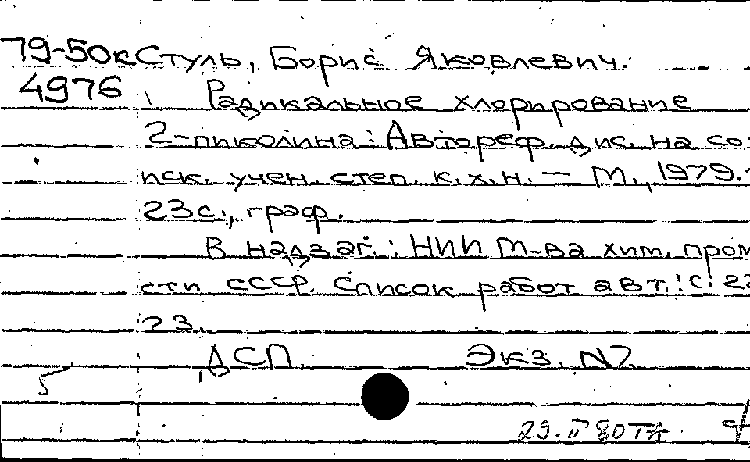 79-50к Стуль, Борис Яковлевич.
4976 Радикальное хлорирование
2-пиколина: Автореф. дис. на со-
иск. учен. степ. к.х.н. — М., 1979.-
23с., граф.
В надзаг.: НИИ М-ва хим. пром-
сти СССР. Список работ авт.: с. 22-
23.
ДСП Экз. N7
5
29.II 80